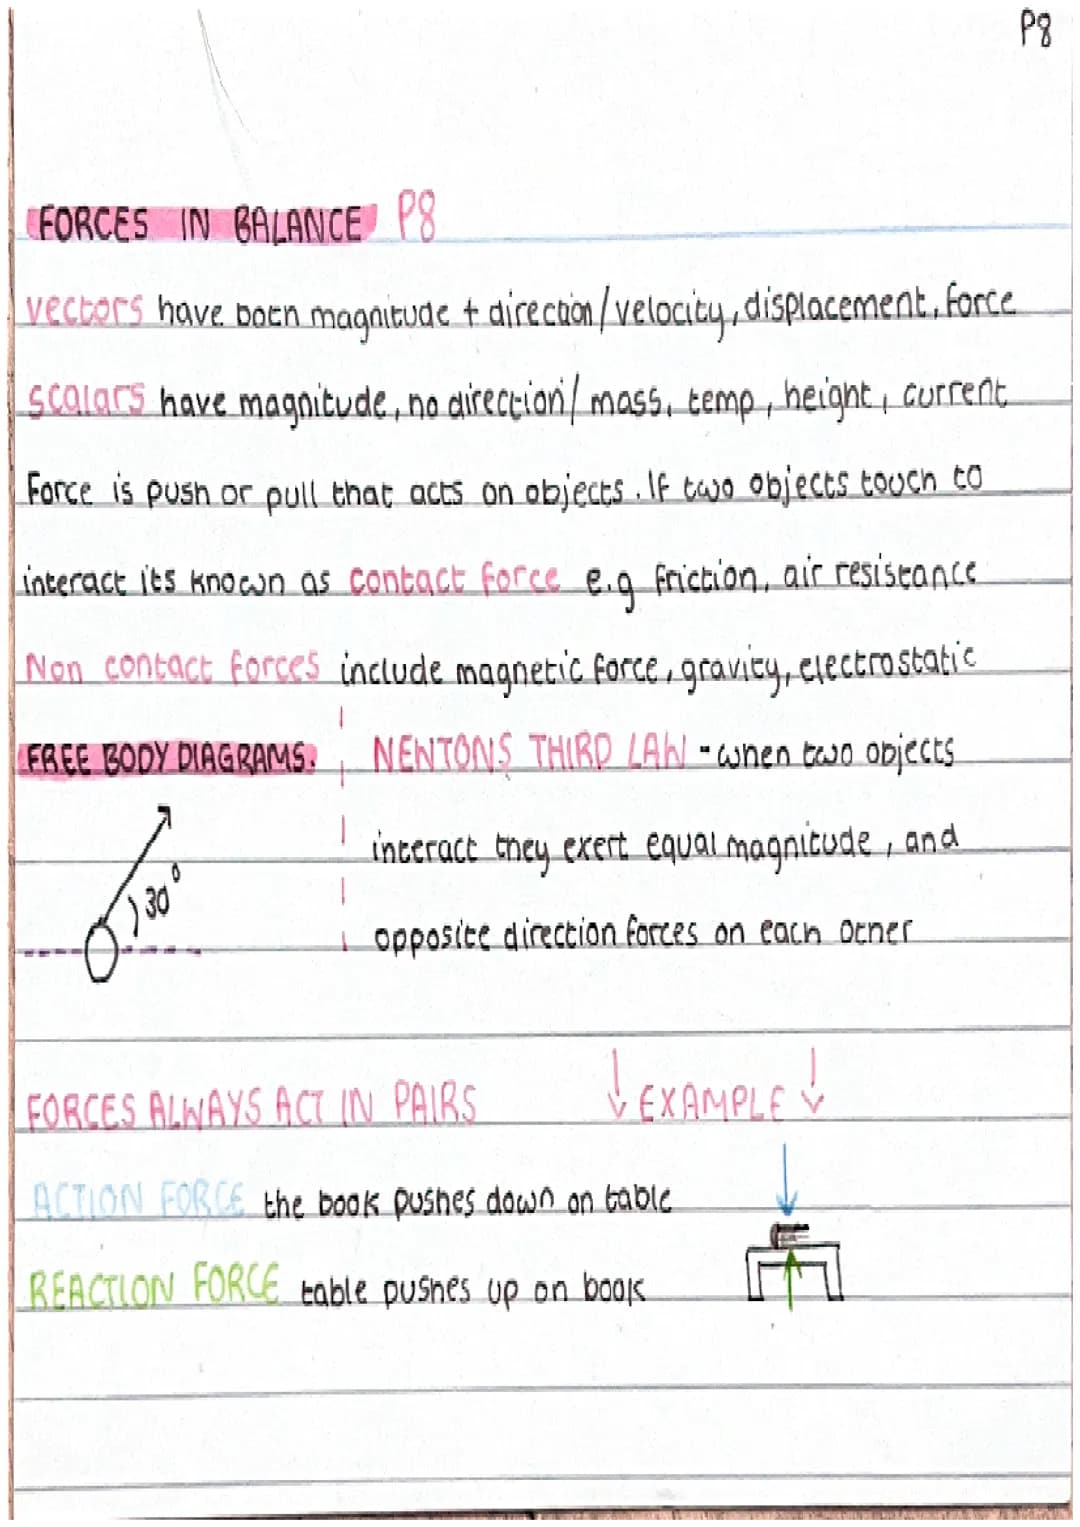 P8
FORCES IN BALANCE P8
vectors have both magnitude + direction/velocity, displacement, force
scalars have magnitude, no direction/ mass, temp, height, current
Force is push or pull that acts on objects. If two objects touch to
interact its known as contact force e.g friction, air resistance
Non contact forces include magnetic force, gravity, electrostatic
FREE BODY DIAGRAMS.
30°
NEWTONS THIRD LAW - when two objects
interact they exert equal magnitude, and
opposite direction forces on each other
FORCES ALWAYS ACT IN PAIRS
EXAMPLE
ACTION FORCE the book pushes down on table
REACTION FORCE table pushes up on book